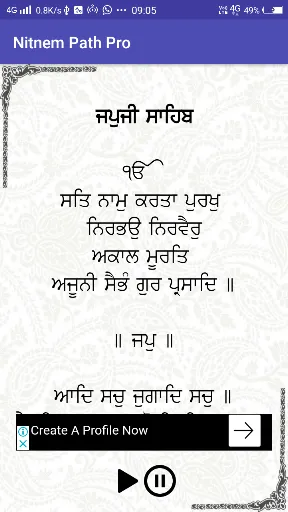 4G 0.8K/s 09:05 4G 49%
Nitnem Path Pro
ਜਪੁਜੀ ਸਾਹਿਬ
ੴ
ਸਤਿ ਨਾਮੁ ਕਰਤਾ ਪੁਰਖੁ
ਨਿਰਭਉ ਨਿਰਵੈਰੁ
ਅਕਾਲ ਮੂਰਤਿ
ਅਜੂਨੀ ਸੈਭੰ ਗੁਰ ਪ੍ਰਸਾਦਿ ॥
॥ ਜਪੁ ॥
ਆਦਿ ਸਚੁ ਜੁਗਾਦਿ ਸਚੁ ॥
Create A Profile Now